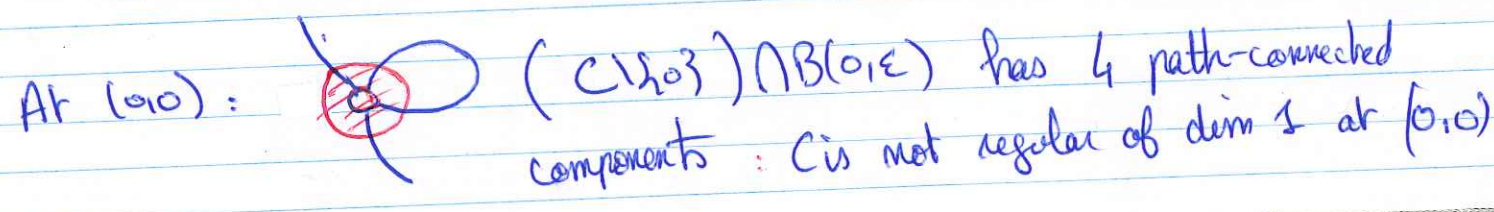 At (0,0) : (C\{0}) ∩ B(0,ε) has 4 path-connected
components : C is not regular of dim 1 at (0,0)